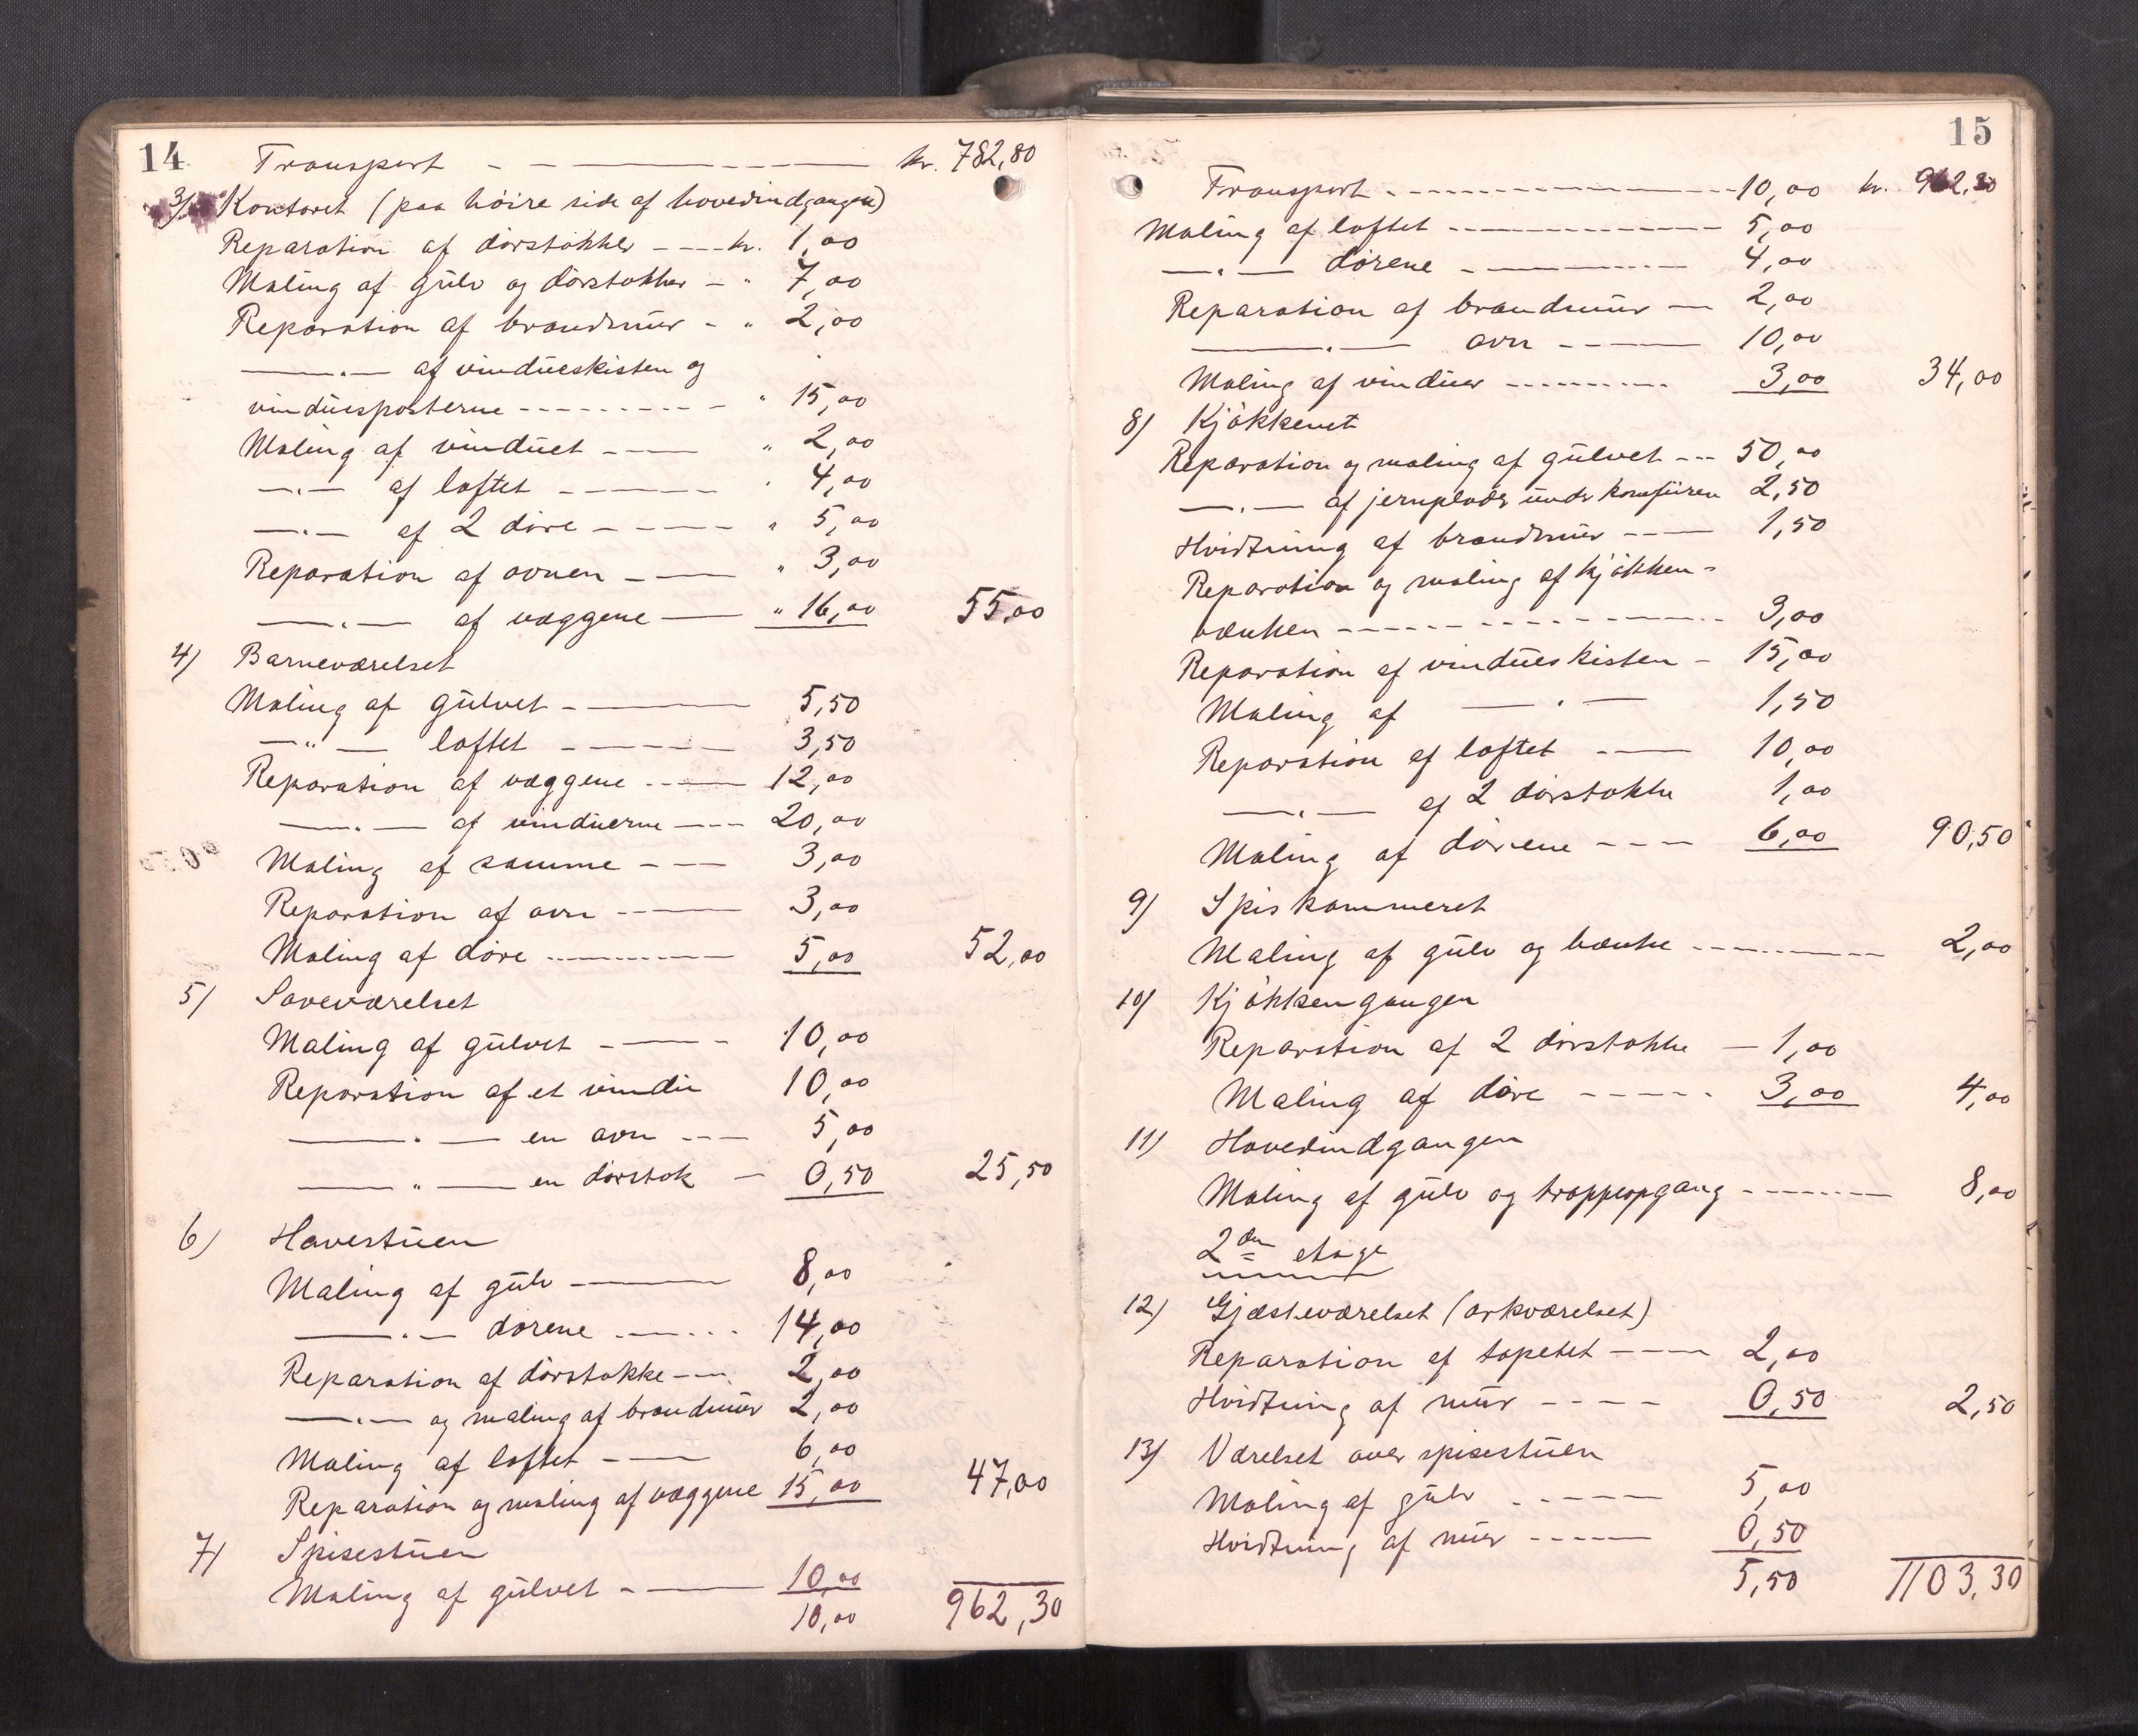 14
Transport - - kr. 782,80
3/ Kontoret (paa høire side af hovedindgangen)
Reparation af dørstokker - kr. 1,00
Maling af gülv og dørstokker - " 7,00
Reparation af brandmür - " 2,00
—"— af vindüeskisten og
vindüesposterne - " 15,00
Maling af vindüet - " 2,00
—"— af loftet - " 4,00
—"— af 2 døre - " 5,00
Reparation af ovnen - " 3,00
—"— af væggene - " 16,00 55,00
4) Barneværelset
Maling af gülvet - 5,50
—"— loftet - 3,50
Reparation af væggene - 12,00
—"— af vindüerne - 20,00
Maling af samme - 3,00
Reparation af ovn - 3,00
Maling af døre - 5,00 52,00
5) Soveværelset
Maling af gülvet - 10,00
Reparation af et vindü 10,00
—"— en ovn - 5,00
—"— en dørstok - 0,50 25,50
6) Havestüen
Maling af gülv - 8,00
—"— dørene - 14,00
Reparation af dørstokke - 2,00
—"— og maling af brandmür 2,00
Maling af loftet - 6,00
Reparation og maling af væggene 15,00 47,00
7) Spisestüen
Maling af gülvet - 10,00
10,00 962,30
15
Transport - 10,00 kr. 962,30
Maling af loftet - 5,00
—"— dørene - 4,00
Reparation af brandmür - 2,00
—"— ovn - 10,00
Maling af vindüer - 3,00 34,00
8) Kjøkkenet
Reparation og maling af gülvet - 50,00
—"— af jernplade ünder komfüren 2,50
Hvidtning af brandmür - 1,50
Reparation og maling af kjøkken-
bænken - 3,00
Reparation af vindüeskisten - 15,00
Maling af —"— 1,50
Reparation af loftet - 10,00
—"— af 2 dørstokke 1,00
Maling af dørene - 6,00 90,50
9) Spiskammeret
Maling af gülv og bænke - 2,00
10) Kjøkkengangen
Reparation af 2 dørstokke - 1,00
Maling af døre - 3,00 4,00
11) Hovedindgangen
Maling af gülv og trappeopgang - 8,00
2den etage
12) Gjæsteværelset (arkværelset)
Reparation af tapetet - 2,00
Hvidtning af mür - 0,50 2,50
13) Værelset over spisestüen
Maling af gülv - 5,00
Hvidtning af mür - 0,50
5,50 1103,30